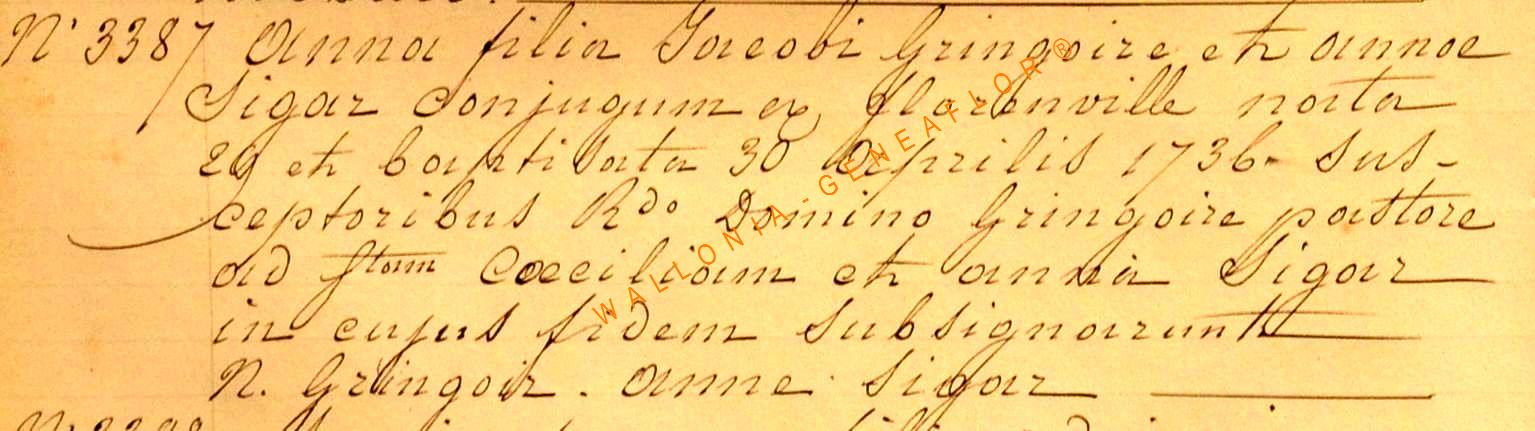 N° 3387 Anna filia Jacobi Gringoire et annae
Sigar conjugum ex florenville nata
29 et baptisata 30 Aprilis 1736. sus-
ceptoribus Rdo Domino Gringoire pastore
ad Stam Caeciliam et anna Sigar
in cujus fidem subsignarunt
N. Gringoir. anne Sigar
WALLONIA - GENEAFLOR ®